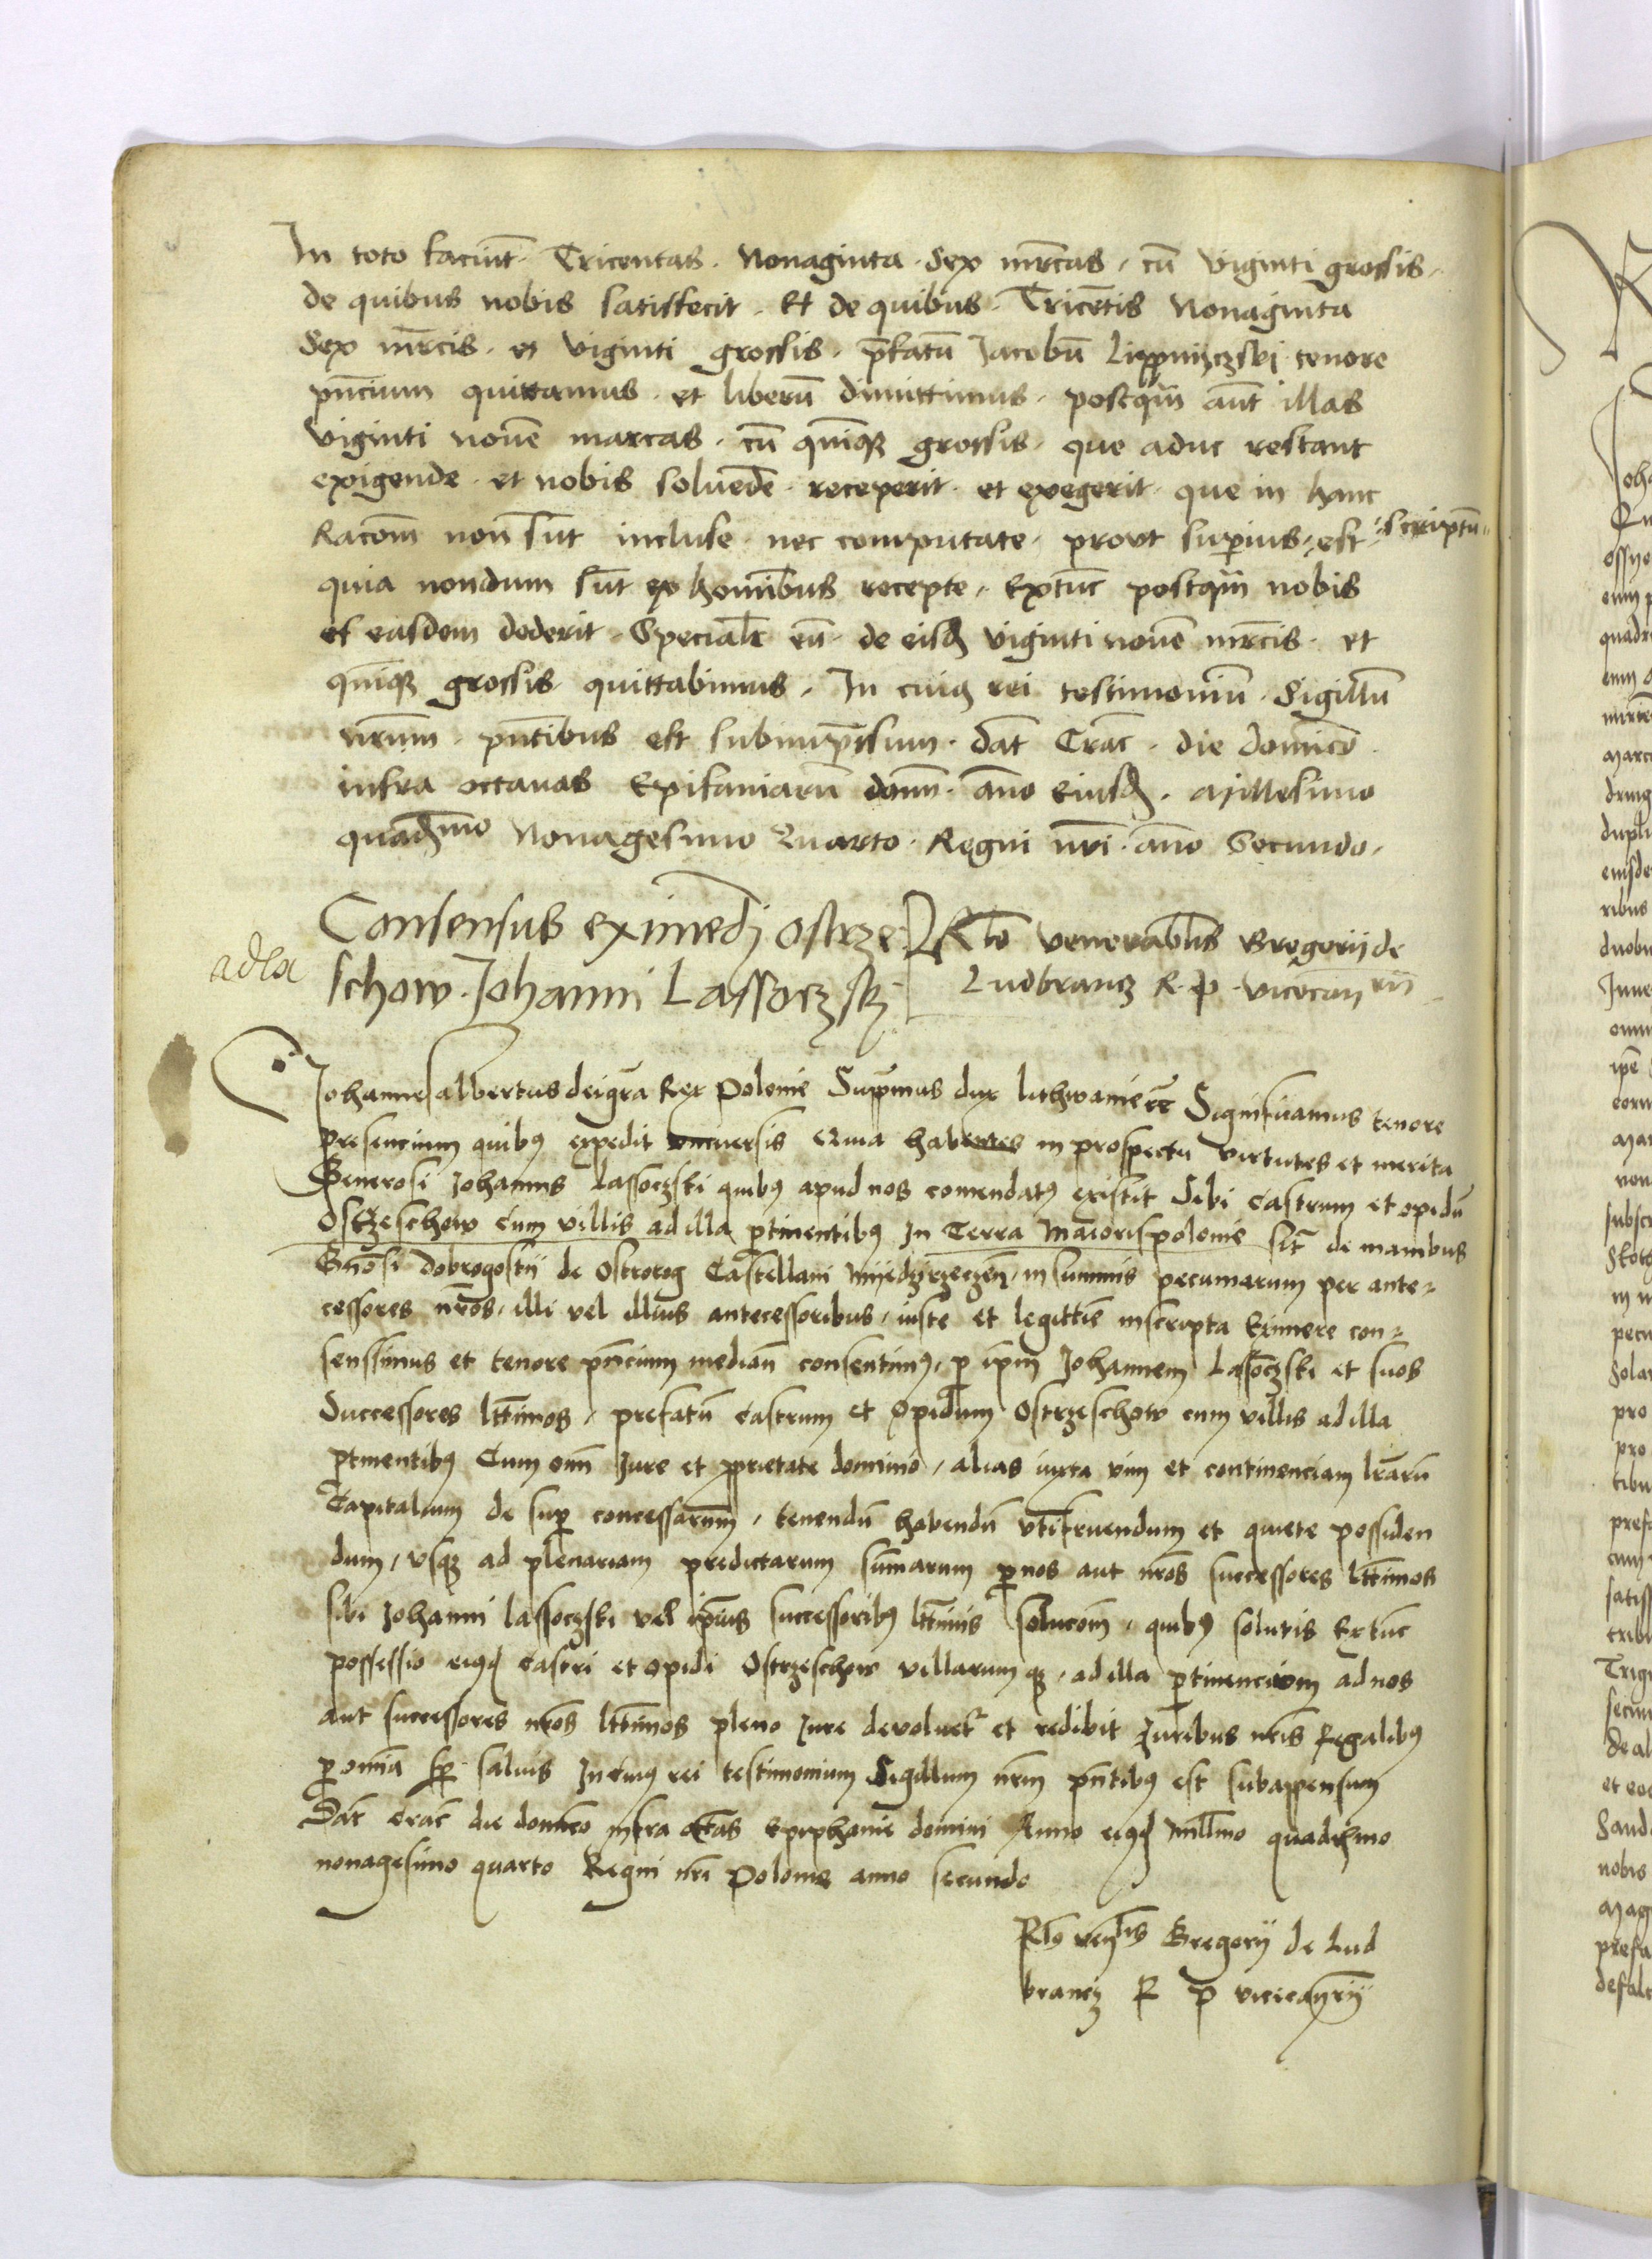 In toto faciunt. Tricentas. Nonaginta. Sex mrcas, cū viginti grossis.
de quibus nobis satisfecit. Et de quibus. Tricētis Nonaginta
Sex mrcis. et viginti grossis. p̄fatū Jacobū Lippniczski tenore
pn̄cium quittamus. et liberū dimittimus. postqm̄ aūt illas
viginti novē marcas. cū quīqȝ grossis. que aduc restant
exigende. et nobis soluēde. receperit. et exegerit. que in hanc
Racōm non sūt incluse. nec computate. provt superius. est scriptū.
quia nondum sūt ex hominibus recepte. Extūc postqm̄ nobis
et easdem dederit. Specialr eū. de eisd viginti novē mrcis. et
quīqȝ grossis quittabimus. In cuiq rei testimoniū. Sigillū
nrūm. pn̄tibus est subimp̄ssum. dāt Crac. die dominco
infra octavas Epifaniarū domī. āno eiusd. Millesimo
quadmo Nonagesimo Quarto. Regni nrī. āno Secundo.
Consensus eximedj Ostrze
schow. Johanni Lassoczsky
adla
Rlō venerablis Gregorij de
Ludbrancz R. p. vicecan rij
Johannes albertus dei grā Rex Polonie Supmus dux Lithwanie rc̄ Significamus tenore
presencium quibȝ expedit universis Quia habentes in prospectu virtutes et merita
Generosi Johannis Lassoczski quibȝ apud nos comendatȝ existit Sibi Castrum et opidū
Ostrzeschow cum villis ad illa ptinentibȝ In Terra Maiorispolonie sit̄ de manibus
Gn̄osi Dobrogostij de Ostrorog Castellani Mijedzirzeczen̄, in summis pecuniarum per ante-
cessores nrōs, illi vel illius antecessoribus, iuste et legittīe inscripta Eximere con-
senssimus et tenore pn̄cium mediān consentimȝ, p ipm̄ Johannem Lassoczski et suos
Successores lttimos, prefatū castrum et Opidum Ostrzeschow cum villis ad illa
ptinentibȝ Cum om̄i Jure et pprietate dominio, alias iuxta vim et continenciam lrārū
Capitalium de sup concessarum, tenendū habendū vtifruendum et quiete possiden
dum, vsqȝ ad plenariam predictarum sūmarum p nos aut nrōs successores lttimos
sibi Johanni Lassoczski vel ipīus successoribȝ lttimis solucōm, quibȝ solutis Extūc
possessio eiȝd castri et opidi Ostrzeschow villarumqȝ, ad illa ptinencium ad nos
aut successores nrōs lttimos pleno Jure devoluetr et redibit Juribus nrīs Regalibȝ
p omīa sp salvis In cuiȝ rei testimonium Sigillum nrm̄ pn̄tibȝ est subappensum
Dāt Crac die domīco infra octās Epiphanie domini Anno eiȝd millmo quadrmo
nonagesimo quarto Regni nrī Polonie anno secundo
Rlō venblis Gregorij de Lud
brancz R P vicecan̄rij